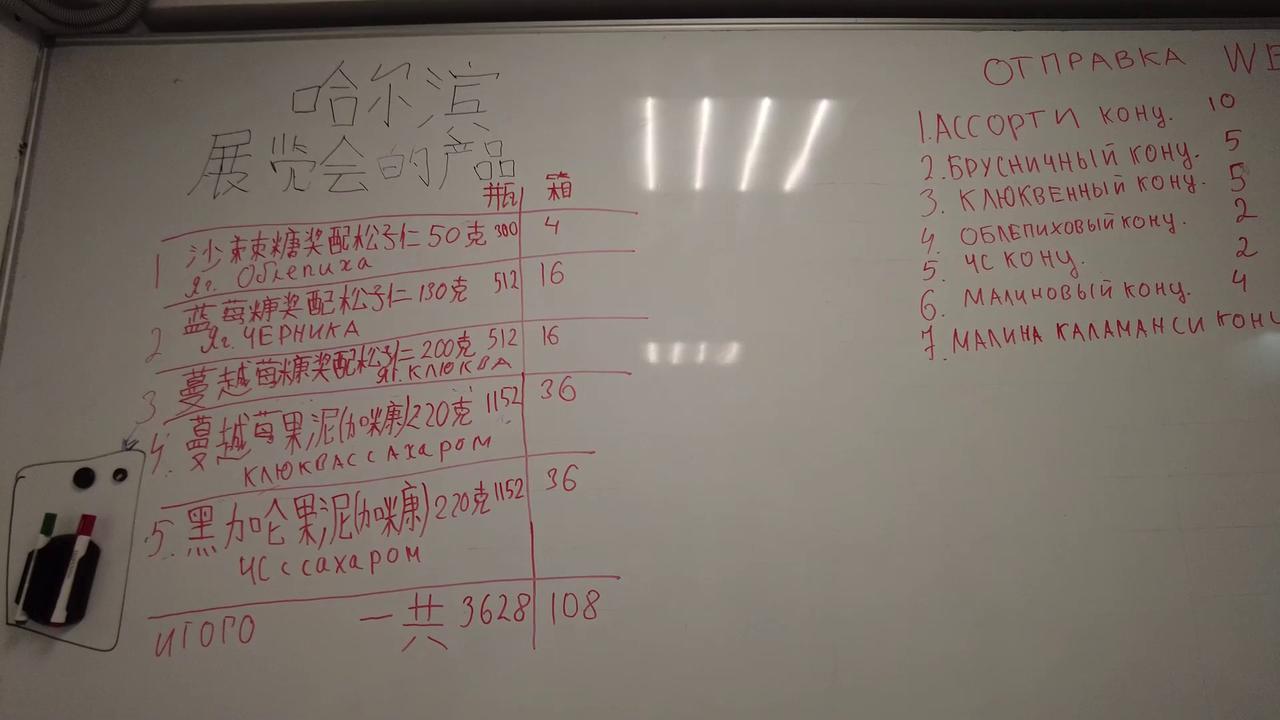 哈尔滨
展览会的产品
瓶 箱
1 沙棘糖浆配松子仁 50克 300 4
Яг. Облепиха
2 蓝莓糖浆配松子仁 130克 512 16
Яг. ЧЕРНИКА
3 蔓越莓糖浆配松子仁 200克 512 16
Яг. КЛЮКВА
4. 蔓越莓果泥(加糖)220克 1152 36
КЛЮКВА С САХАРОМ
5. 黑加仑果泥(加糖)220克 1152 36
ЧС с сахаром
ИТОГО 一共 3628 108
ОТПРАВКА WE
1. АССОРТИ конц. 10
2. БРУСНИЧНЫЙ конц. 5
3. КЛЮКВЕННЫЙ конц. 5
4. ОБЛЕПИХОВЫЙ конц. 2
5. ЧС КОНЦ. 2
6. МАЛИНОВЫЙ конц. 4
7. МАЛИНА КАЛАМАНСИ КОНЦ